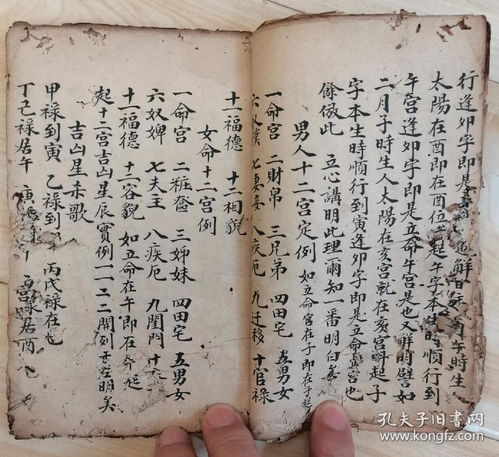 行逢卯字即是
太陽在酉即在酉位起午字本時順行到
午宮逢卯字即是立命午宮是也又解明譬如
二月子時生人太陽在亥宮就在亥宮時起子
字本生時順行到寅逢卯字即是立命寅宮也
餘倣此 立心講明此理爾知一番明白矣
男人十二宮定例 如立命宮在子即在子起
一命宮 二財帛 三兄弟 四田宅 五男女
六奴僕 七妻妾 八疾厄 九迁移 十官祿
十一福德 十二相貌
女命十二宮例
一命宮 一粧奩 三姊妹 四田宅 五男女
六奴婢 七夫主 八疾厄 九閨門
十一福德 十二容貌 如立命在午即在午起
起十二宮吉凶星辰實例一一二二開列于左明矣
吉凶星未歌
甲祿到寅 乙祿到 丙戊祿在
丁己祿居午 庚 辛祿居酉
孔夫子旧书网
www.kongfz.com